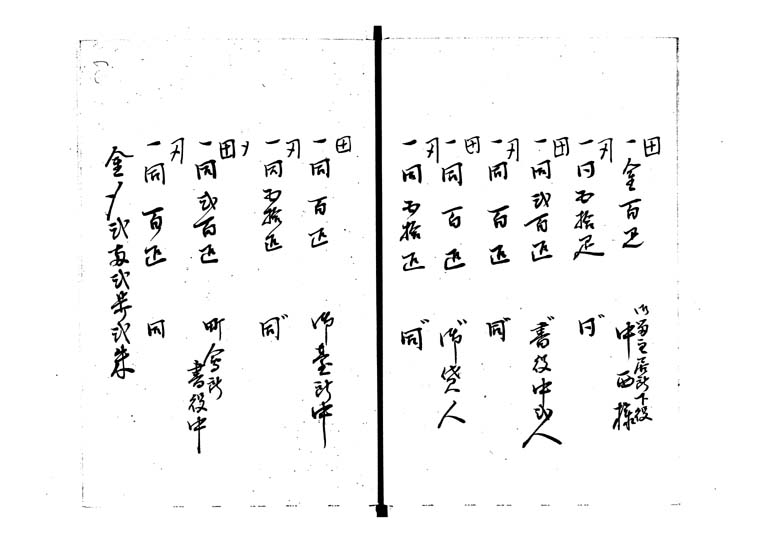 田
一金百疋 御留主居所下役
中西様
一同五拾疋 同
田
一同弐百疋 書役中弐人
刃
一同百疋 同
田
一同百疋 御貸人
刃
一同五拾疋 同
田
一同百疋 御臺所中
刃
一同五拾疋 同
田
一同弐百疋 町会所
書役中
刃
一同百疋 同
金〆弐両弐歩弐朱